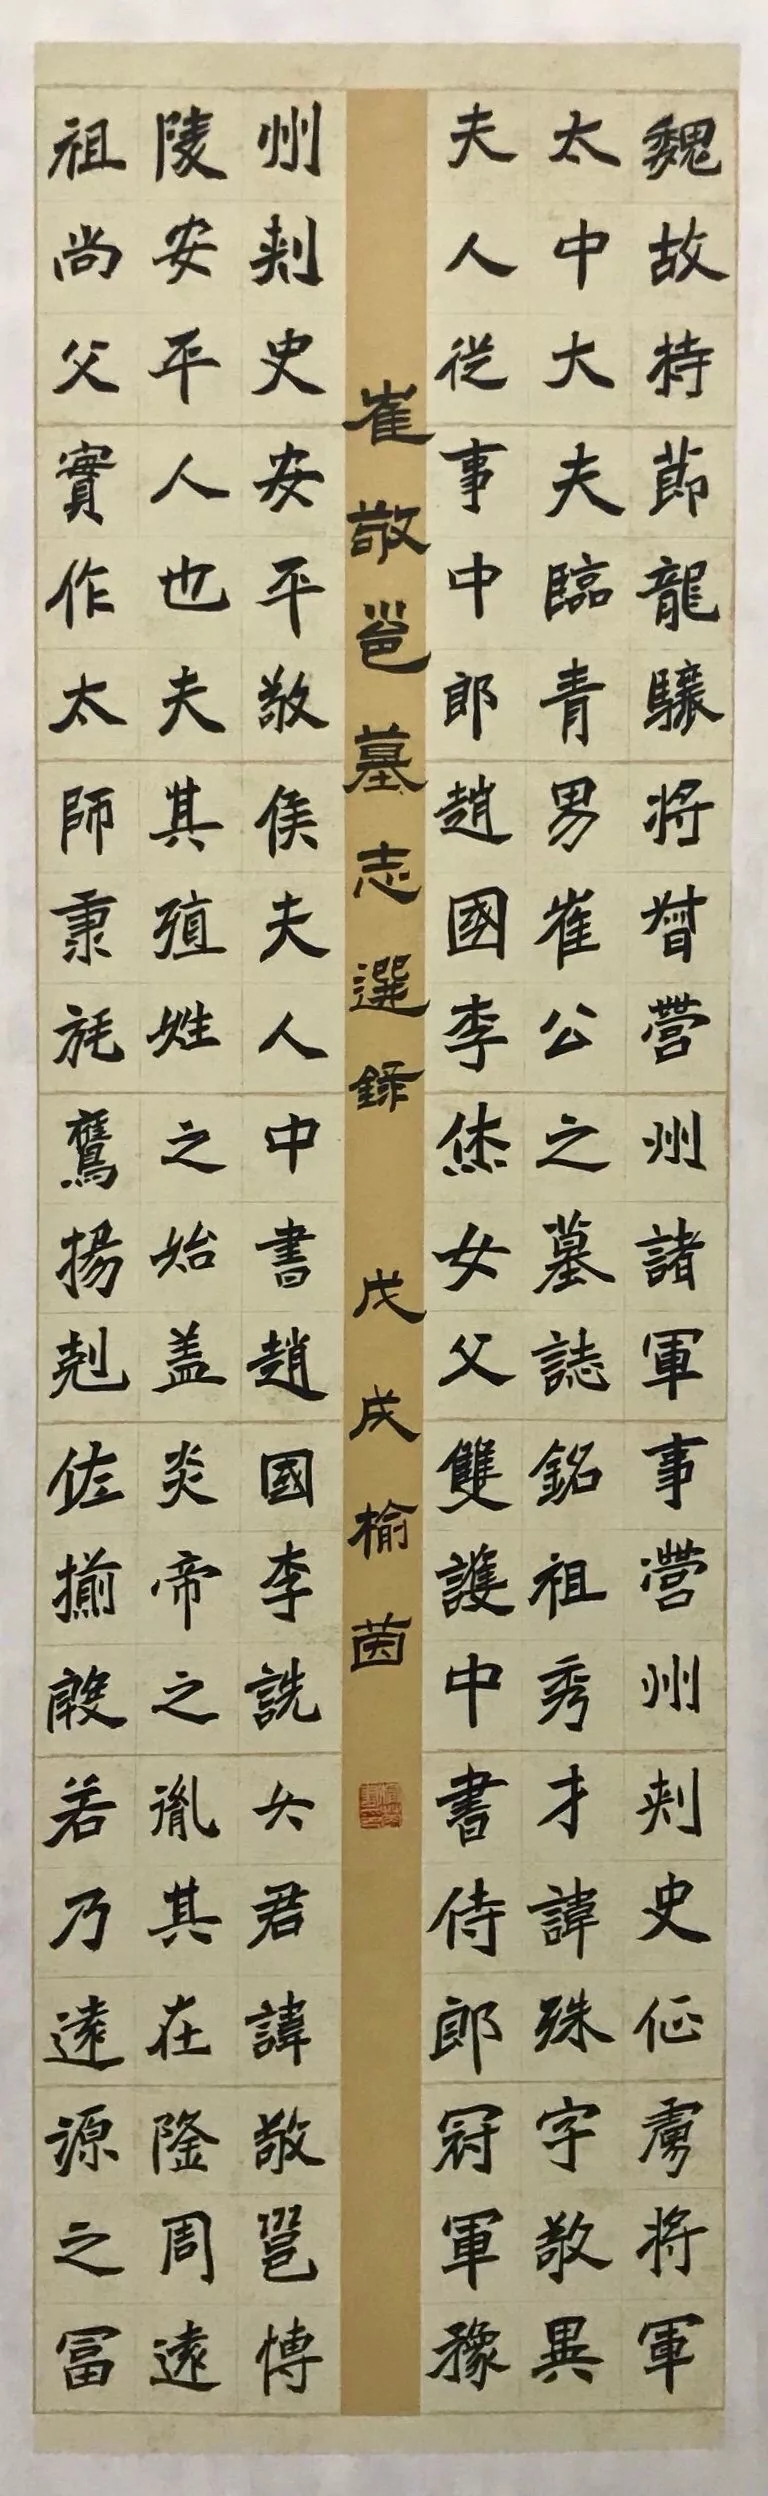 魏故持節龍驤將督營州諸軍事營州刺史征虜將軍
太中大夫臨青男崔公之墓誌銘祖秀才諱殊字敬異
夫人從事中郎趙國李烋女父雙護中書侍郎冠軍豫
崔敬邕墓志選錄 戊戌榆茵
州刺史安平敬侯夫人中書趙國李詵女君諱敬邕博
陵安平人也夫其殖姓之始蓋炎帝之胤其在隆周遠
祖尚父實作太師秉旄鷹揚剋佐揃殷若乃遠源之富